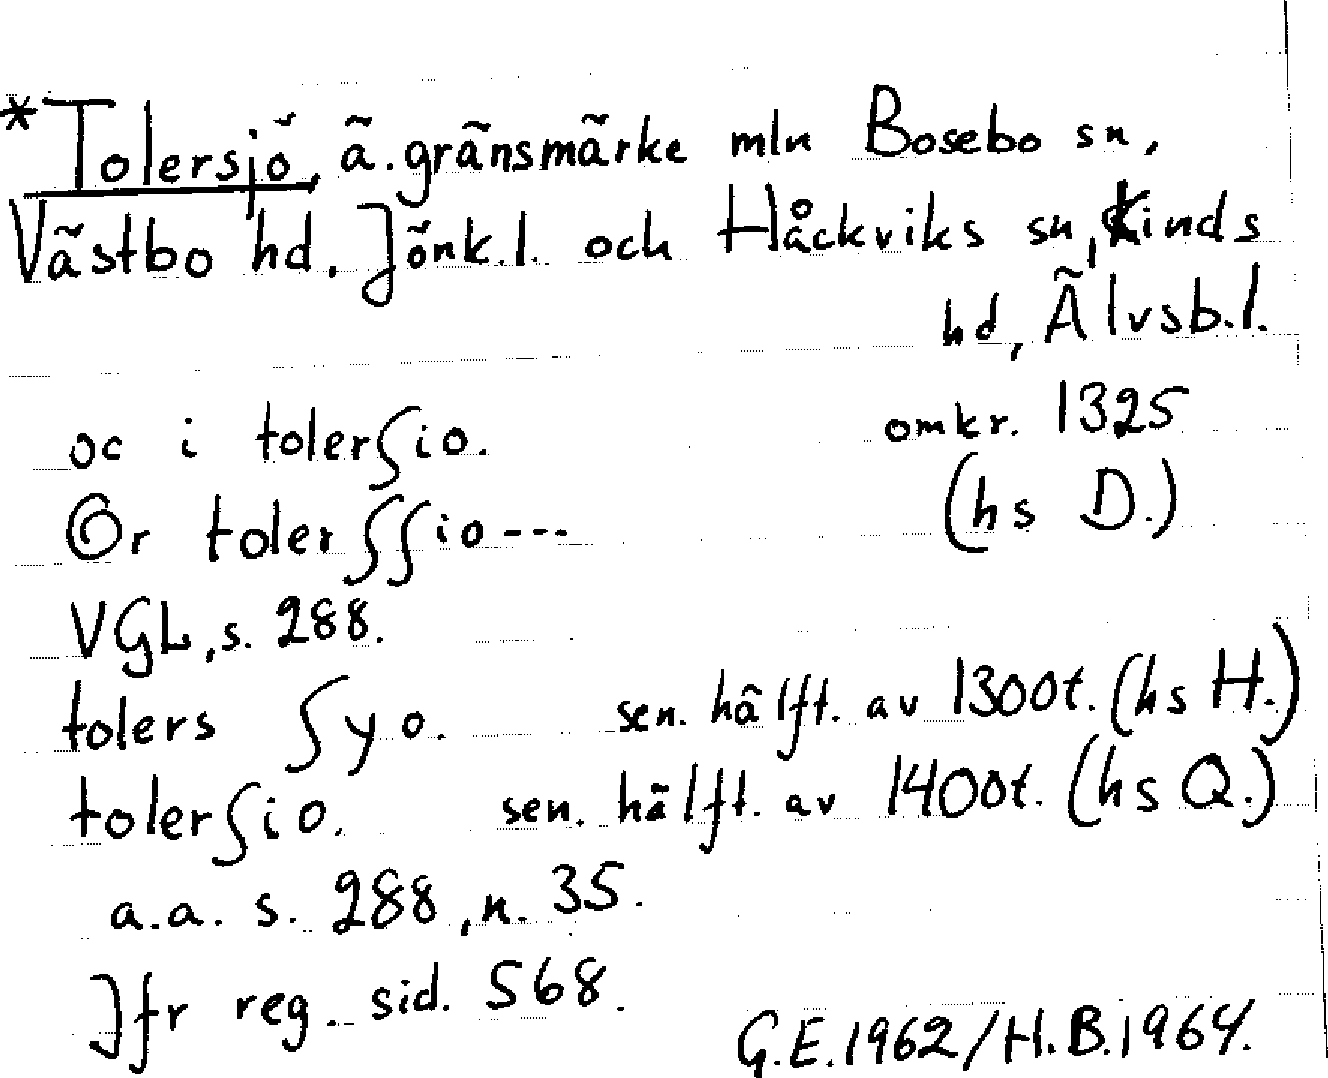 *Tolersjö, ä. gränsmärke mln Bosebo sn,
Västbo hd, Jönk.l. och Håckviks sn, Kinds
hd, Älvsb.l.
oc i tolerſio. omkr. 1325
Or tolerſſio --- (hs D.)
VGL, s. 288.
tolers ſyo. sen. hälft. av 1300t. (hs H.)
tolerſio. sen. hälft. av 1400t. (hs Q.)
a.a. s. 288, n. 35.
Jfr reg. sid. 568.
G.E. 1962/H.B. 1964.